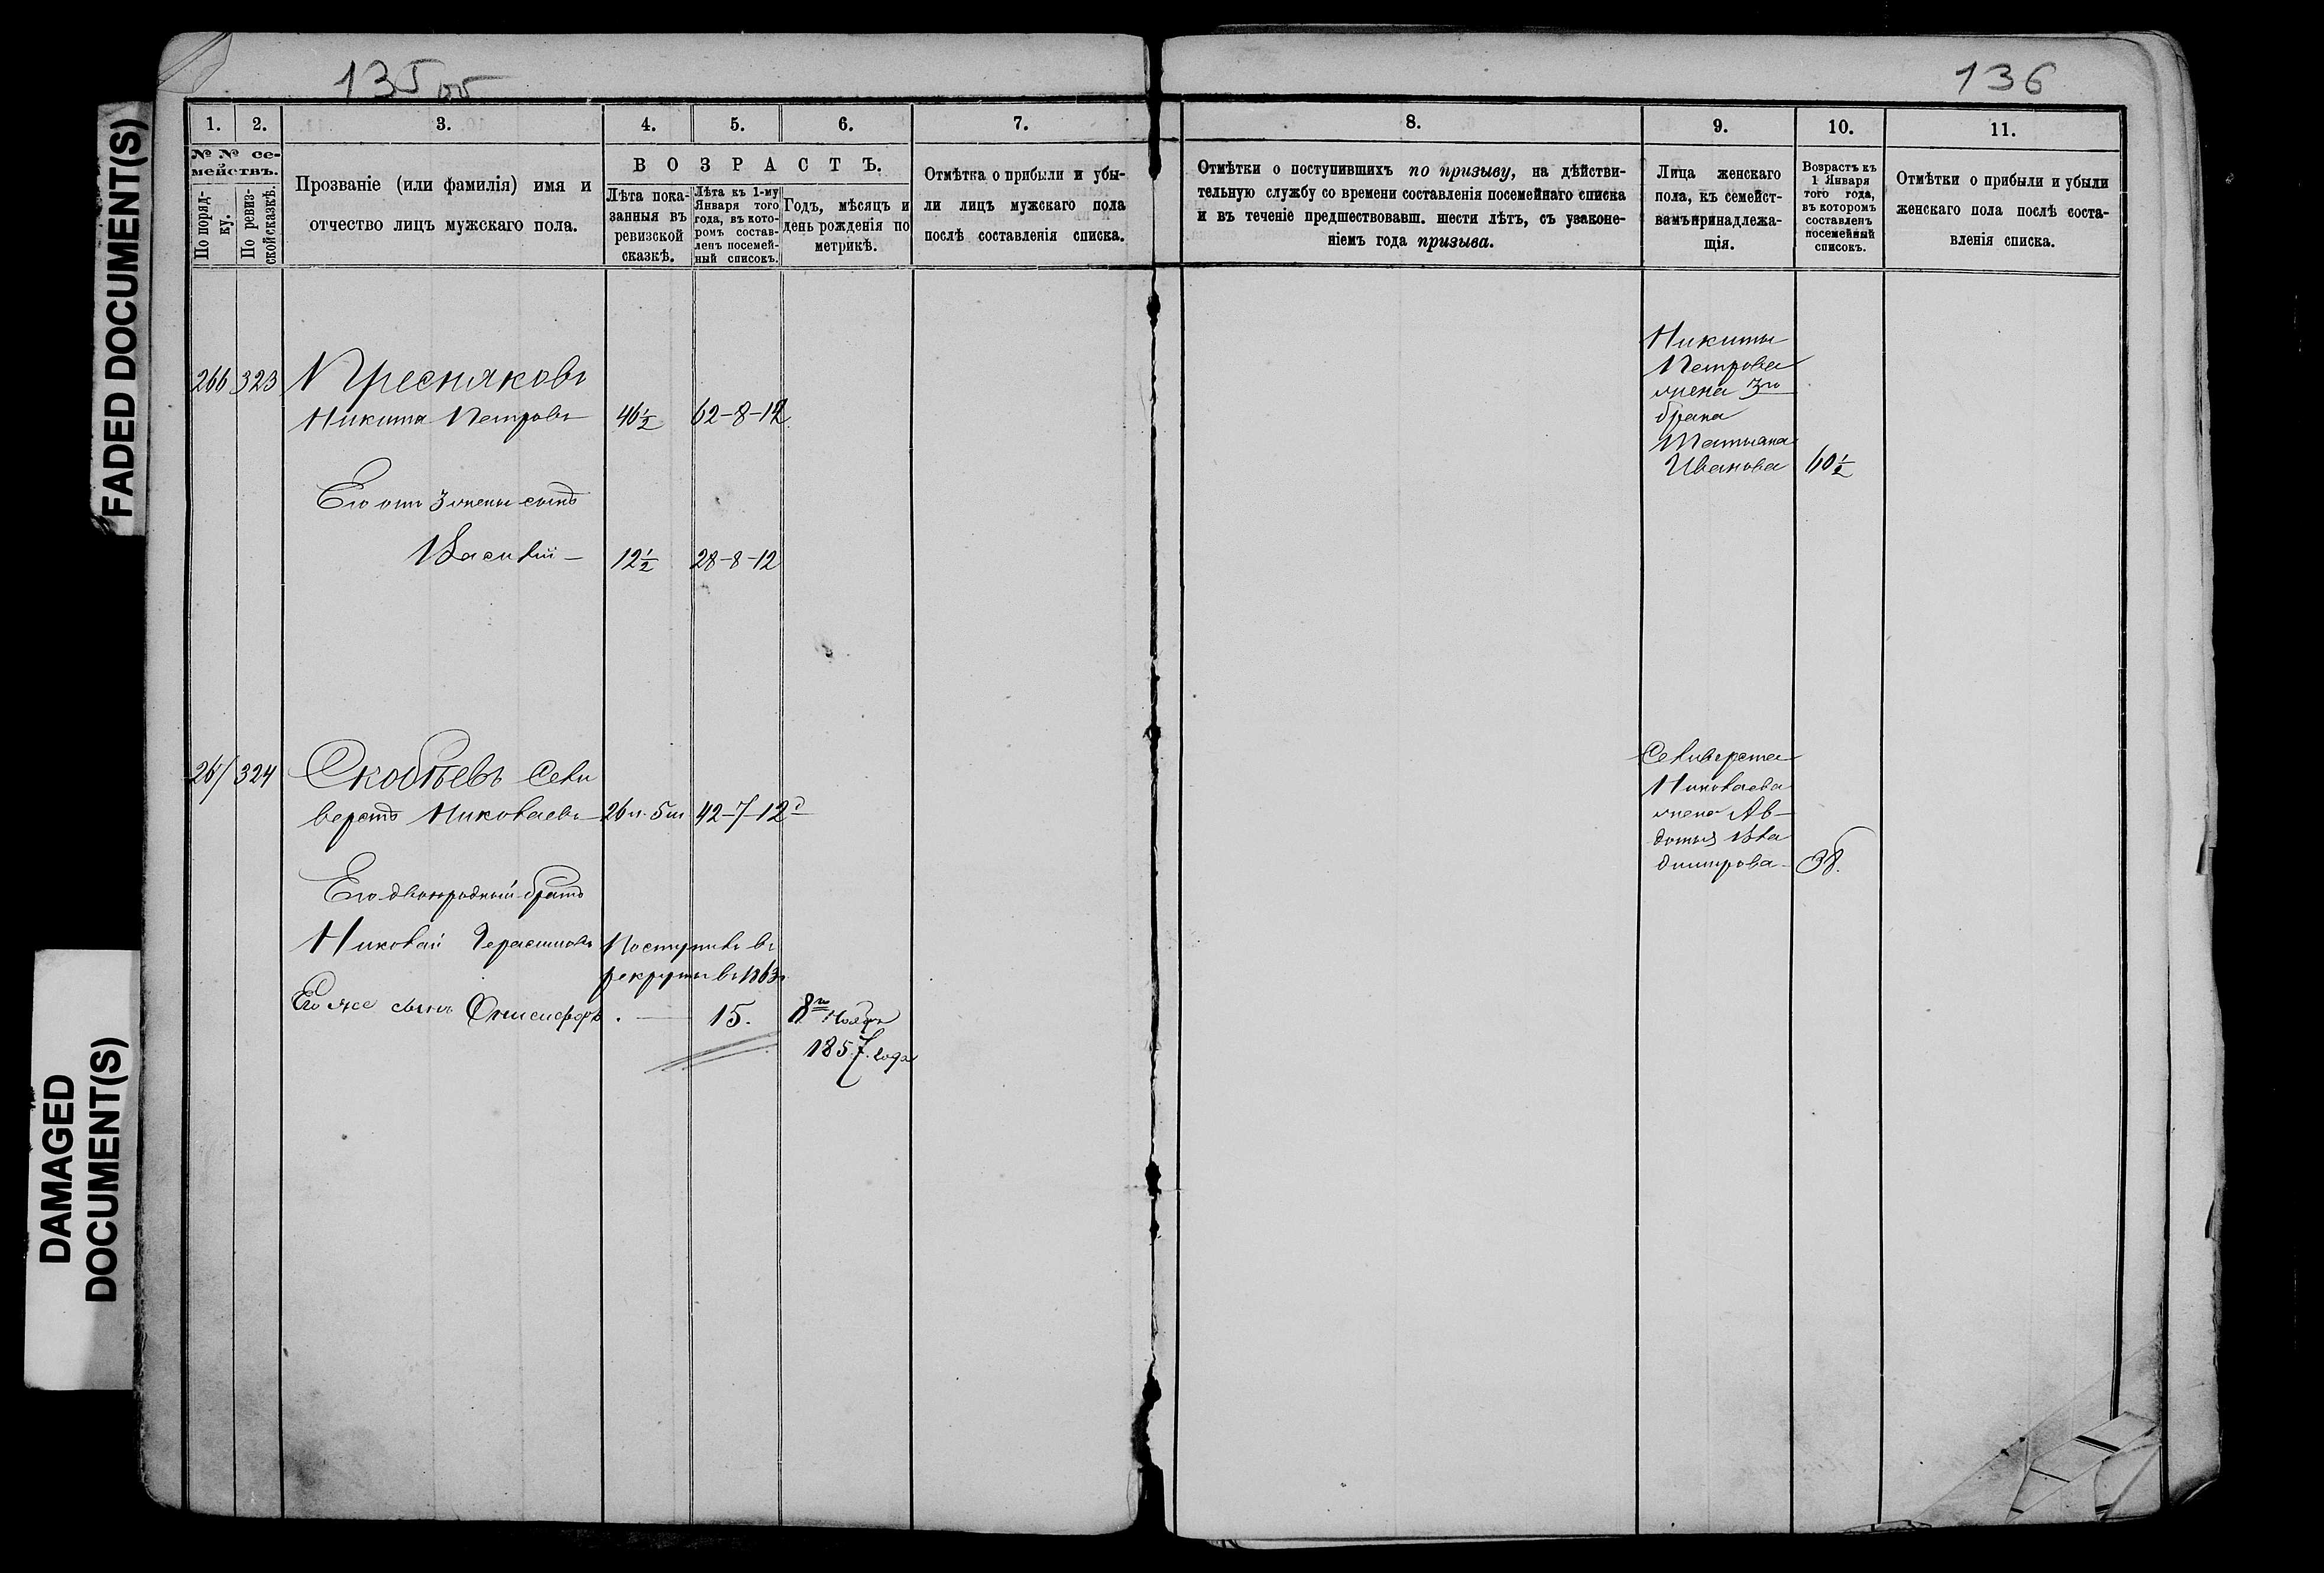 135 об
136
FADED DOCUMENT(S)
DAMAGED
DOCUMENT(S)
1.
2.
3.
4.
5.
6.
7.
8.
9.
10.
11.
№ № се-
мействъ.
По поряд-
ку.
По ревиз-
ской сказкѣ.
Прозваніе (или фамилія) имя и
отчество лицъ мужскаго пола.
ВОЗРАСТЪ.
Лѣта пока-
занныя въ
ревизской
сказкѣ.
Лѣта къ 1-му
Января того
года, въ кото-
ромъ состав-
ленъ посемей-
ный списокъ.
Годъ, мѣсяцъ и
день рожденія по
метрикѣ.
Отмѣтка о прибыли и убы-
ли лицъ мужскаго пола
послѣ составленія списка.
Отмѣтки о поступившихъ по призыву, на дѣйстви-
тельную службу со времени составленія посемейнаго списка
и въ теченіе предшествовавш. шести лѣтъ, съ узаконе-
ніемъ года призыва.
Лица женскаго
пола, къ семейст-
вамъ принадлежа-
щія.
Возрастъ къ
1 Января
того года,
въ которомъ
составленъ
посемейный
списокъ.
Отмѣтки о прибыли и убыли
женскаго пола послѣ соста-
вленія списка.
266 323 Пресняковъ
Никита Петровъ 46½ 62-8-12
Его отъ 3 жены сынъ
Василій 12½ 28-8-12
Никиты
Петрова
жена 3го
брака
Татьяна
Иванова 60½
267 324 Скобѣевъ Сели
верстъ Николаевъ 26 л. 5 м 42-7-12 д
Его двоюродный братъ
Николай Герасимовъ Поступилъ въ
рекруты въ 1863
Его же сынъ Онисифоръ 15. 8го Ноябр
1857 года
Селиверста
Николаева
жена Ав-
дотья Вла
димирова 38.